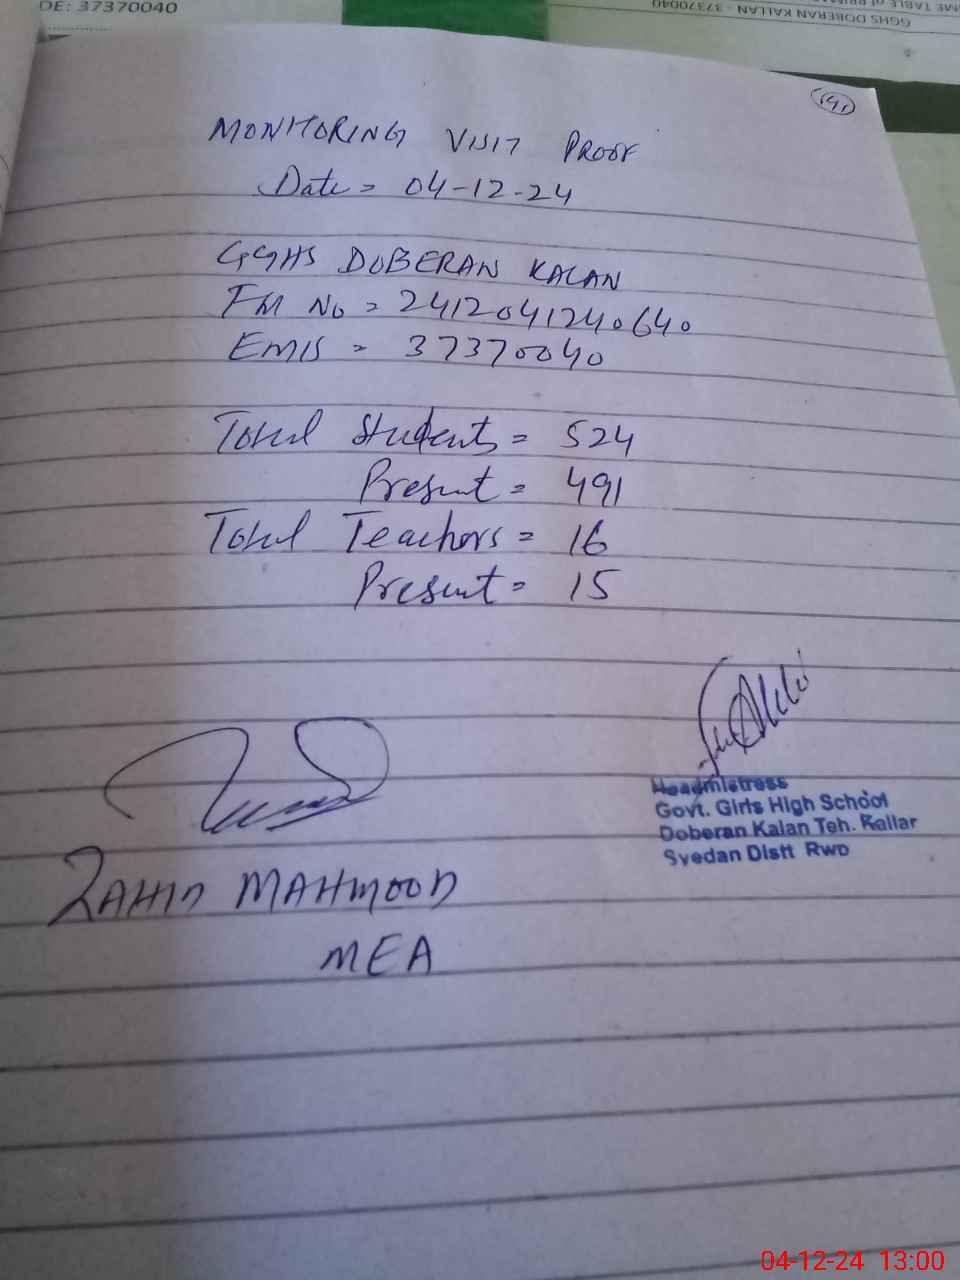 DE: 37370040
GGHS DOBERAN KALLAN - 37370040
191
MONITORING VISIT PROOF
Date = 04-12-24
GGHS DOBERAN KALAN
FM No = 2412041240640
EMIS = 37370040
Total Students = 524
Present = 491
Total Teachers = 16
Present = 15
Headmistress
Govt. Girls High School
Doberan Kalan Teh. Kallar
Syedan Distt Rwp
ZAHID MAHMOOD
MEA
04-12-24 13:00